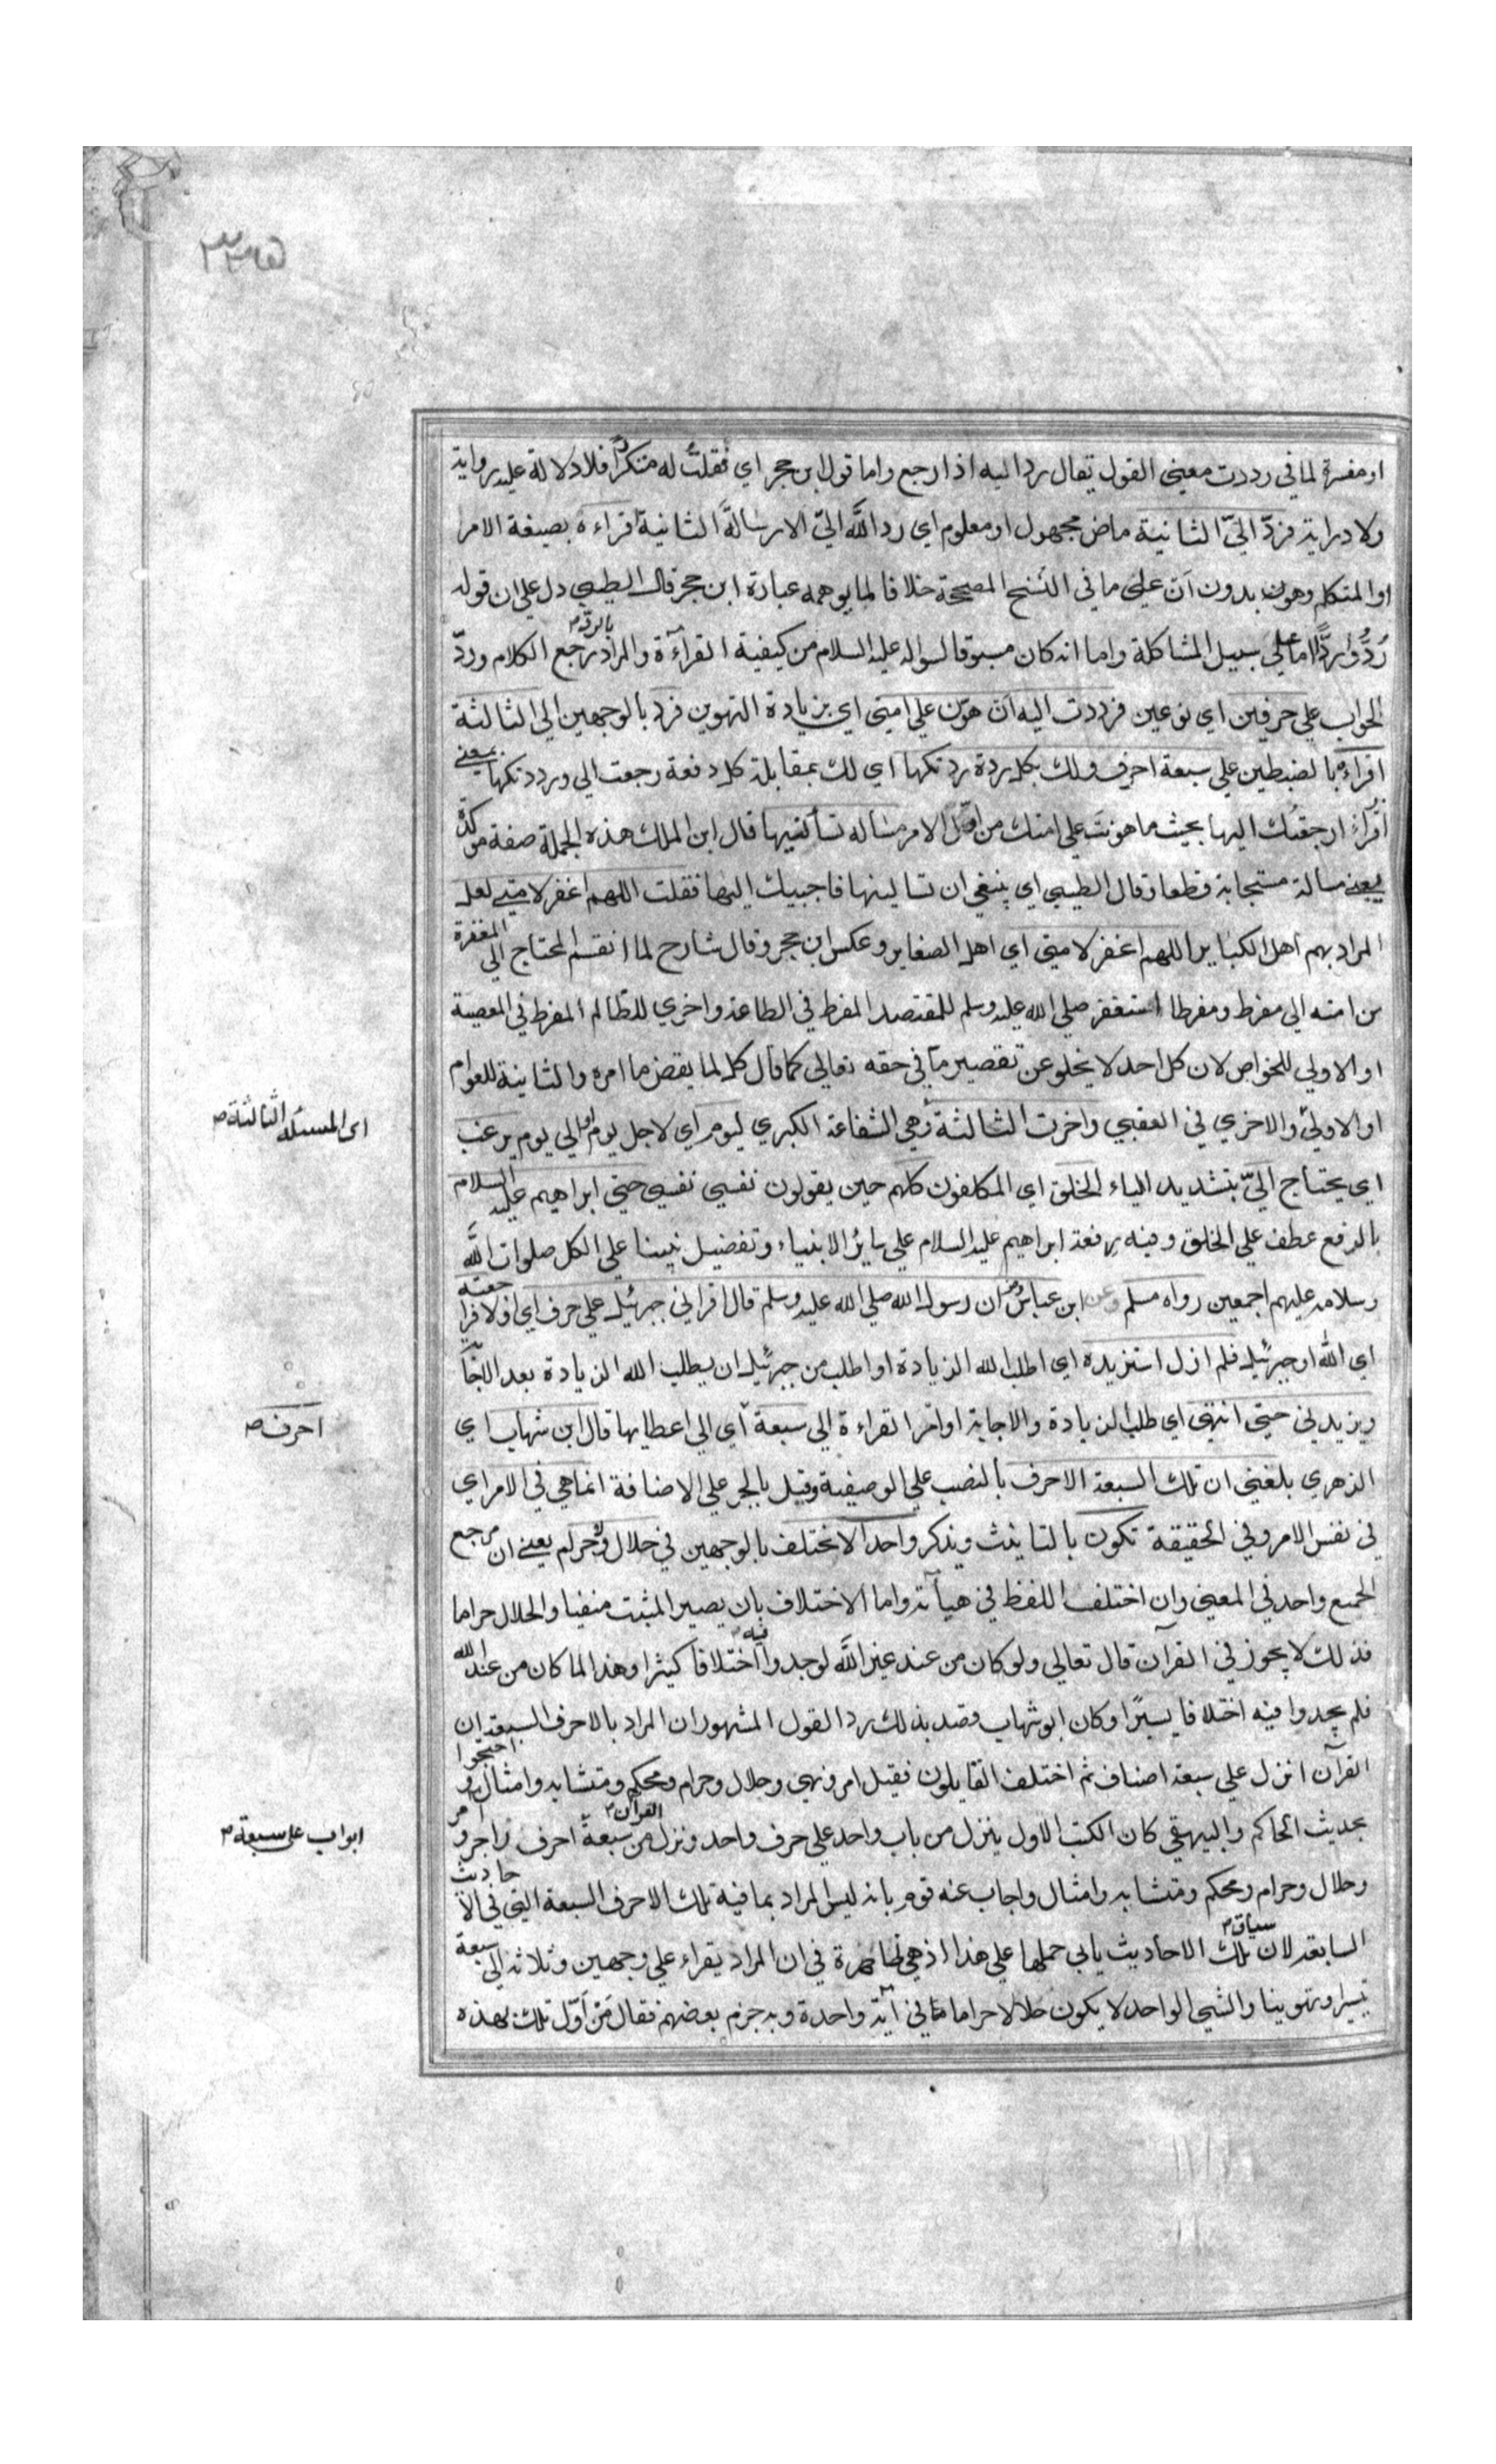 ٣٣٥
او مفسرة لما في رددت معنى القول يقال رد اليه اذا رجع واما قول ابن حجر اي فقلت له متكررا فلا دلالة عليه رواية
ولا دراية فردّ اليّ الثانية ماض مجهول او معلوم اي رد الله اليّ الارسالة الثانية اقراءه بصيغة الامر
او المتكلم وهون بدون ان على ما في النسخ المصححة خلافا لما يوهمه عبارة ابن حجر قال الطيبي دل على ان قوله
رُدُّوا ردًّا اما على سبيل المشاكلة واما انه كان مسبوقا لسواله عليه السلام من كيفية القراءة والمراد بالرد رجع الكلام وردّ
الجواب على حرفين اي نوعين فرددت اليه ان هوّن على امتي اي بزيادة التهوين فرد بالوجهين الي الثالثة
اقراءه بالضبطين على سبعة احرف ولك بكل ردة رددتكها اي لك بمقابلة كل دفعة رجعت الي ورددتكها بمعنى
ارجعتك اليها بحيث ما هونت على امتك من اول الامر مسالة تسألنيها قال ابن الملك هذه الجملة صفة مؤكدة
يعني مسالة مستجابة قطعا وقال الطيبي اي ينبغي ان تسالينها فاجيبك اليها فقلت اللهم اغفر لامتي لعل
المراد بهم اهل الكبائر اللهم اغفر لامتي اي اهل الصغاير وعكس ابن حجر وقال شارح لما انقسم المحتاج الى المغفرة
من امته الى مفرط ومفرطا استغفر صلي الله عليه وسلم للمقتصد المفرط في الطاعة واخري للظالم المفرط في المعصية
او الاولي للخواص لان كل احد لا يخلو عن تقصير ما في حقه تعالي كما قال كلا لما يقض ما امره والثانية للعوام
او الاولي والاخري في العقبي واخرت الثالثة وهي الشفاعة الكبري ليوم اي لاجل يوم او الي يوم يرغب
اي المسئلة الثالثة ص
اي يحتاج اليّ بتشديد الياء الخلق اي المكلفون كلهم حين يقولون نفسي نفسي حتى ابراهيم عليه السلام
بالرفع عطف علي الخلق وفيه رفعة ابراهيم عليه السلام علي سائر الانبياء وتفضيل نبينا على الكل صلوات الله
وسلامه عليهم اجمعين رواه مسلم وعن ابن عباس ان رسول الله صلي الله عليه وسلم قال اقراني جبرئيل على حرف اي اولا فراجعته
اي الله او جبرئيل فلم ازل استزيده اي اطلب الله الزيادة او اطلب من جبرئيل ان يطلب الله الزيادة بعد الاجابة
ويزيدني حتى انتهى اي طلب الزيادة والاجابة او امر القراءة الي سبعة اي الي اعطايها قال ابن شهاب اي
احرف ص
الزهري بلغني ان تلك السبعة الاحرف بالنصب علي الوصفية وقيل بالجر علي الاضافة انما هي في الامر اي
في نفس الامر وفي الحقيقة تكون بالتانيث ويذكر واحدا لا تختلف بالوجهين في حلال ولا حرام يعني ان مرجع
الجميع واحد في المعنى وان اختلف اللفظ في هيأته واما الاختلاف بان يصير المثبت منفيا والحلال حراما
فذلك لا يجوز في القرآن قال تعالي ولو كان من عند غير الله لوجدوا فيه اختلافا كثيرا وهذا لما كان من عند الله
فلم يجدوا فيه اختلافا يسيرا وكان ابو شهاب قصد بذلك رد القول المشهور ان المراد بالاحرف السبعة ان
القرآن انزل علي سبعة اصناف ثم اختلف القايلون فقيل امر ونهي وحلال وحرام ومحكم ومتشابه وامثال واحتجوا
بحديث الحاكم والبيهقي كان الكتب الاول ينزل من باب واحد على حرف واحد ونزل القرآن من سبعة احرف زاجر وآمر
ابواب على سبعة م
وحلال وحرام ومحكم ومتشابه وامثال واجاب عنه قوم بانه ليس المراد بما فيه تلك الاحرف السبعة التي في الاحاديث
السابقة لان سياق تلك الاحاديث يابي حملها على هذا اذ هي ظاهرة في ان المراد يقراء علي وجهين وثلاثة الى سبعة
تيسيرا وتهوينا والشي الواحد لا يكون حلالا حراما ما في آية واحدة وبه جزم بعضهم فقال من اوّل تلك بهذه